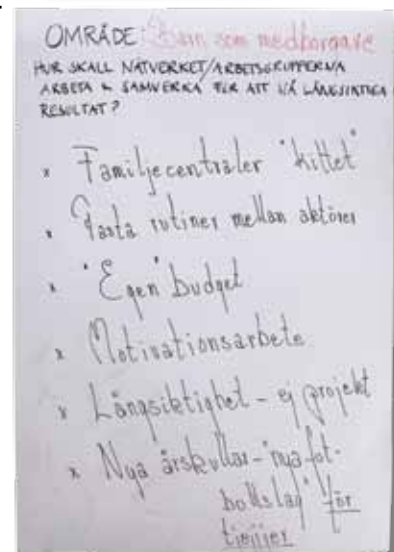 OMRÅDE: Barn som medborgare
HUR SKALL NÄTVERKET/ARBETSGRUPPERNA
ARBETA & SAMVERKA FÖR ATT NÅ LÅNGSIKTIGA
RESULTAT?
x Familjecentraler "kittet"
x Fasta rutiner mellan aktörer
x "Egen" budget
x Motivationsarbete
x Långsiktighet - ej projekt
x Nya årskullar - "nya fot-
bollslag" för
tjejjer